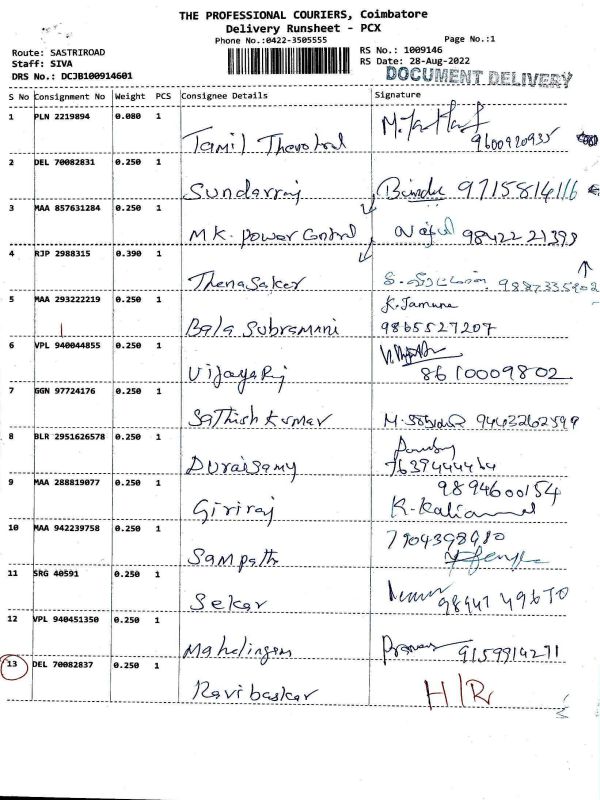 THE PROFESSIONAL COURIERS, Coimbatore
Delivery Runsheet - PCX
Phone No.:0422-3505555
Page No.:1
Route: SASTRIROAD
RS No.: 1009146
Staff: SIVA
RS Date: 28-Aug-2022
DRS No.: DCJB100914601
DOCUMENT DELIVERY
S No Consignment No Weight PCS Consignee Details Signature
1 PLN 2219894 0.080 1
9600920935
2 DEL 70082831 0.250 1
Sundarraj Bindu 9715814116
3 MAA 857631284 0.250 1
MK. Power Control 98422 21399
4 RJP 2988315 0.390 1
Thenasaker 9887335902
5 MAA 293222219 0.250 1
K. Jamuna
Bala Subramani 9865527207
6 VPL 940044855 0.250 1
Vijayaraj 8610009802
7 GGN 97724176 0.250 1
Sathish Kumar 9443262599
8 BLR 2951626578 0.250 1
Duraisamy 7639444464
9 MAA 288819077 0.250 1
9894600154
Giriraj K-Kaliammal
10 MAA 942239758 0.250 1
7904398980
Sampath
11 SRG 40591 0.250 1
Sekar 98947 49670
12 VPL 940451350 0.250 1
Mahalingam 9159914271
13 DEL 70082837 0.250 1
Ravibaskar H/R